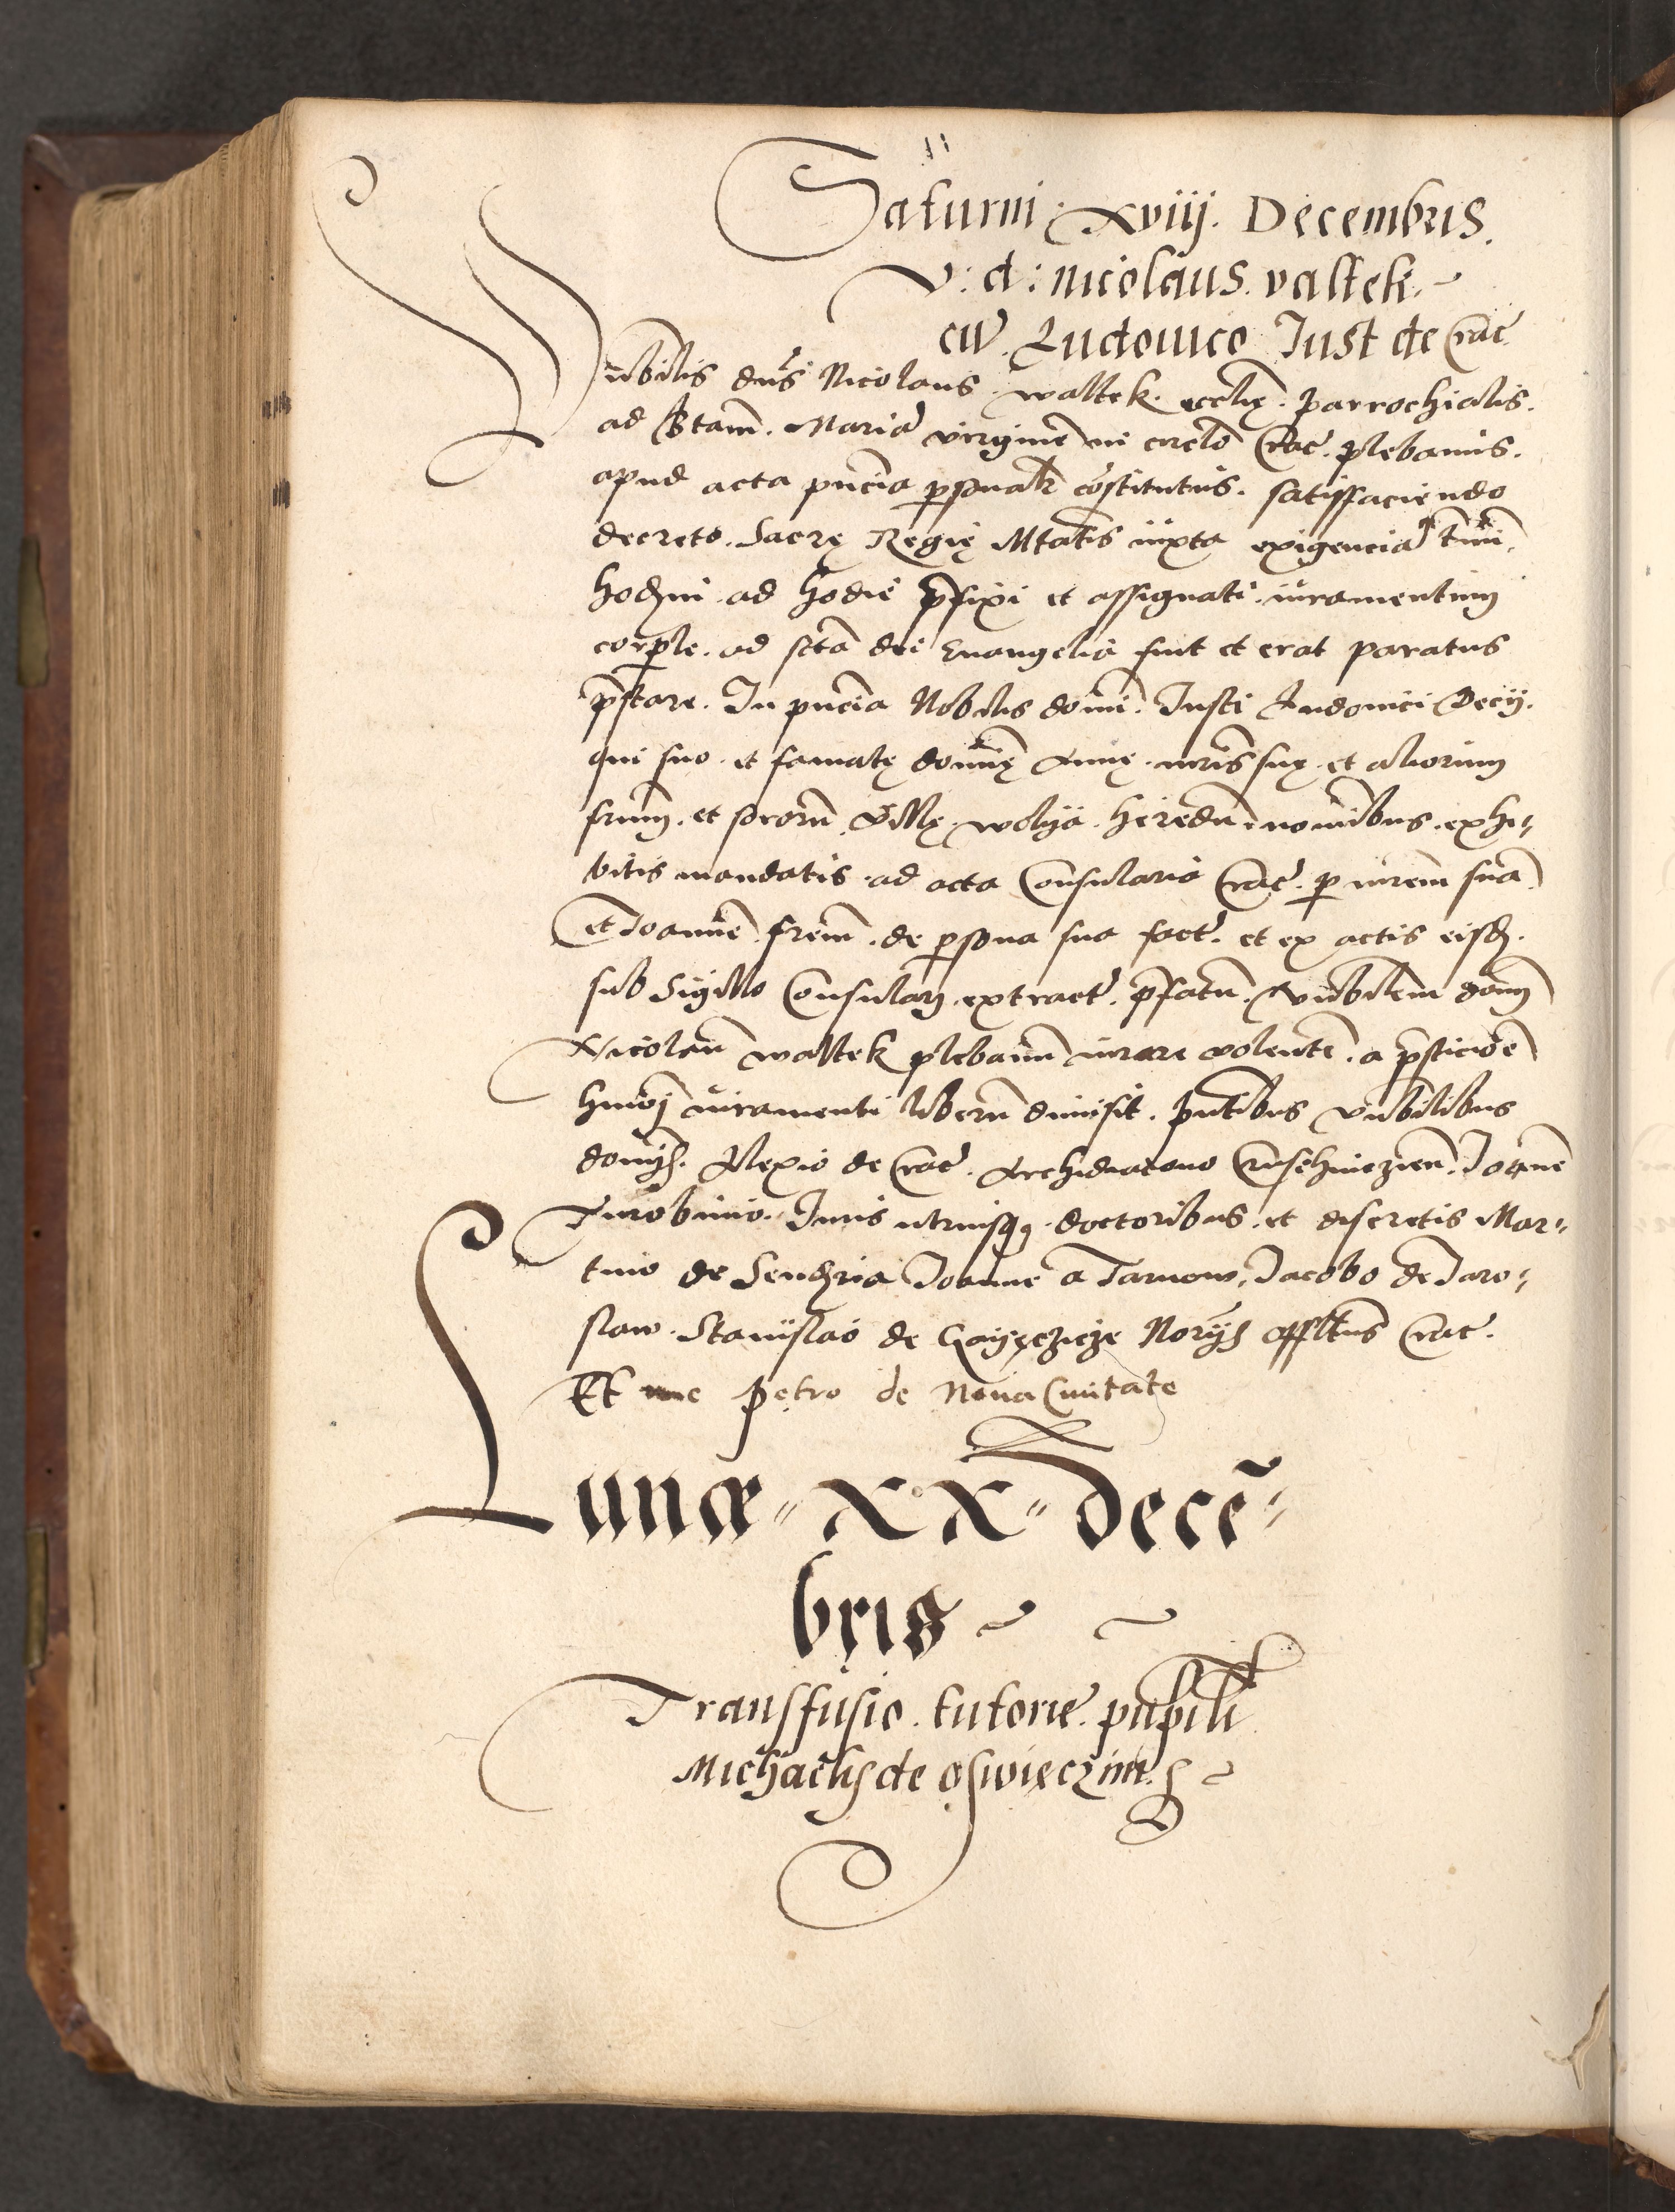 Saturni xviij. Decembris.
V: d: Nicolaus. valtek.
cu̅. Ludovico Iust de Crac̅
Vn̅bilis dn̅s Nicolaus waltek. eccl̅ię parrochialis.
ad Stam̅. Maria̅ virgine̅ in circlo̅ Crac̅. plebanus.
apud acta pn̅cia p̅sonal̅r co̅stitutus. satisfaciendo
decreto. Sacrę Regię Mtatis iuxta exigencia̅ t̅mi̅
hod̅ni ad hodie p̅fixi et assignati iuramentum
corp̅le. ad scta̅ dei Evangelia fuit et erat paratus
p̅stare. In pn̅cia Nobilis domi̅. Iusti Ludovici Decij.
qui suo et famatę domi̅nę Annę mr̅is suę et aliorum
frum̅. et sororu̅ Villę wolya heredu̅ nomi̅bus. exhi-
bitis mandatis ad acta Consularia Crac̅. p̅ mr̅em sua̅
et Ioanne̅ frem̅. de p̅sona sua fact̅. et ex actis eisd̅.
sub Sigillo Consulari extract̅. p̅fatu̅. Vn̅bilem dom̅
Nicolau̅ waltek plebanu̅ iurare volente̅. a p̅sticio̅e
hmo̅i iuramenti liberu̅ dimisit. pn̅tibus vn̅bilibus
domi̅s. Alexio de Crac̅. Archidiacono Ioanne̅
Turobinio. Iuris utriusq̅ doctoribus. et discretis Mar-
tino de Ioanne a Tarnow, Iacobo de Iaro-
slaw. Stanislao de Nor̅ijs Crac̅.
Et me Petro de Nova Civitate
Lunæ XX Dece̅-
bris
Transfusio. tutorie. pupill̅i
Michaelis de Oswięczim.